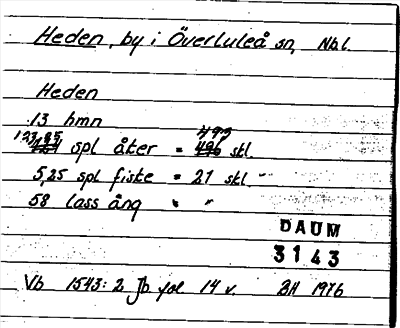 Heden, by i Överluleå sn, Nbl.
Heden
13 bmn
123,25
124 spl åker = 496 skl.
493
5,25 spl fiske = 21 skl "
58 lass äng " "
DAUM
3143
Vb 1543:2 Jb fol. 14 v. BH 1976